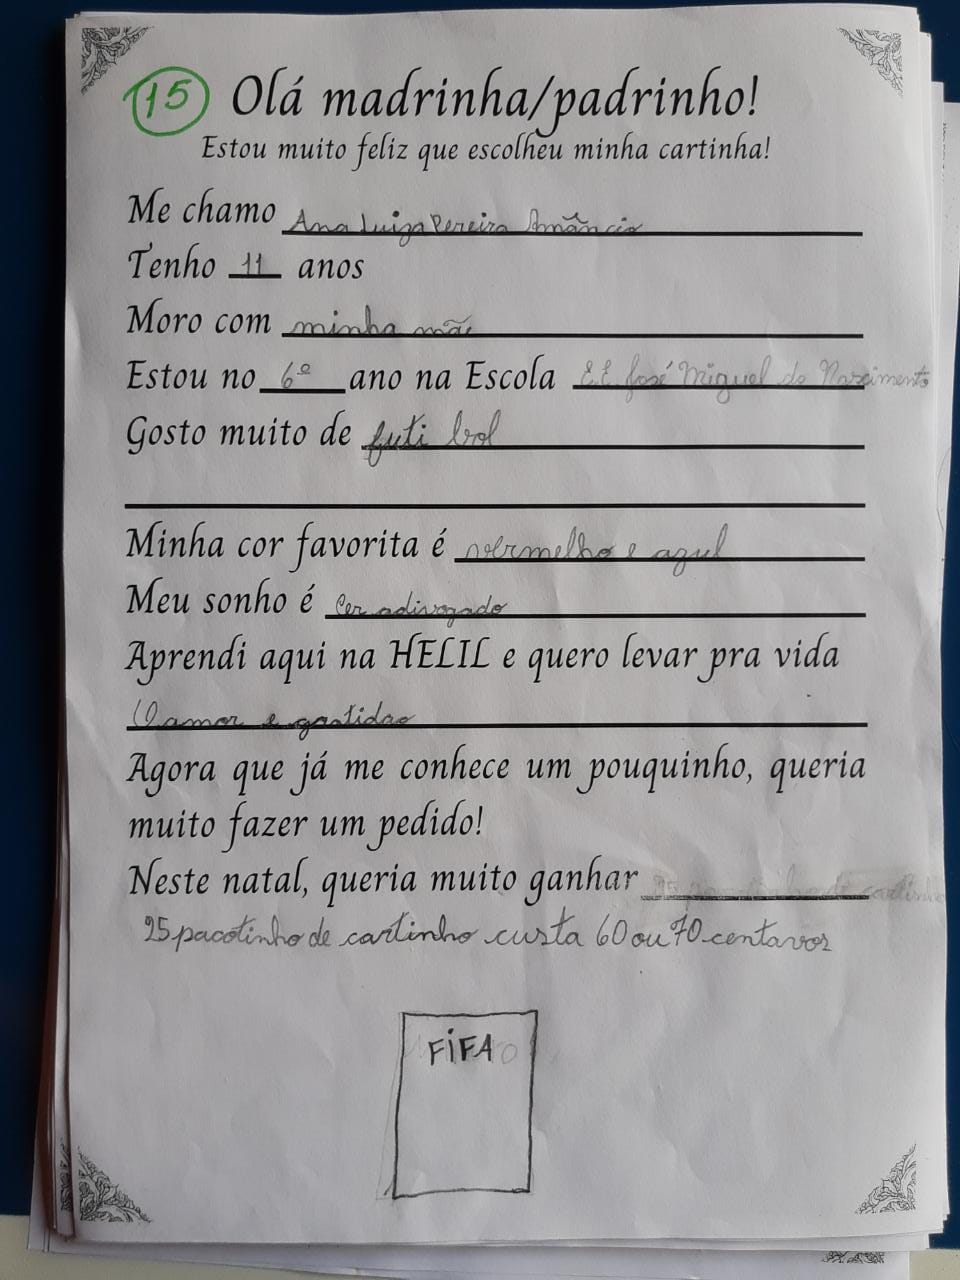 15 Olá madrinha/padrinho!
Estou muito feliz que escolheu minha cartinha!
Me chamo Ana Luiza Pereira Amâncio
Tenho 11 anos
Moro com minha mãe
Estou no 6º ano na Escola E.E. José Miguel do Nascimento
Gosto muito de futi bol
Minha cor favorita é vermelho e azul
Meu sonho é ser adivogado
Aprendi aqui na HELIL e quero levar pra vida
O amor e gratidao
Agora que já me conhece um pouquinho, queria
muito fazer um pedido!
Neste natal, queria muito ganhar
25 pacotinho de cartinho custa 60 ou 70 centavos
FiFA